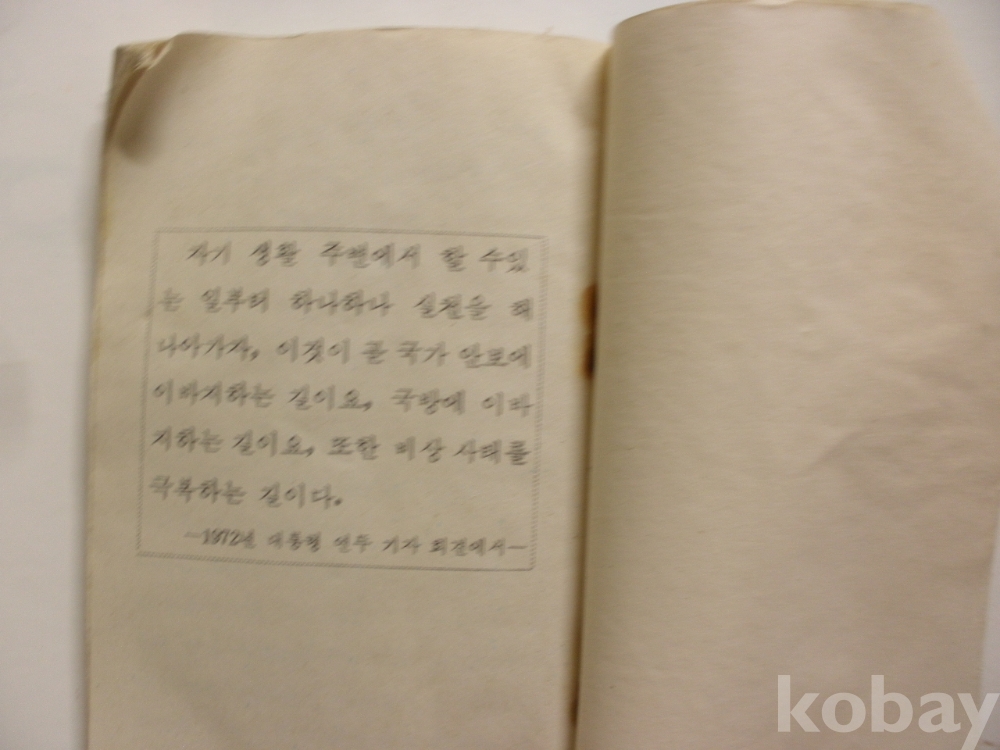 자기 생활 주변에서 할 수있
는 일부터 하나하나 실천을 해
나아가자, 이것이 곧 국가 안보에
이바지하는 길이요, 국방에 이바
지하는 길이요, 또한 비상 사태를
극복하는 길이다.
—1972년 대통령 연두 기자 회견에서—
kobay